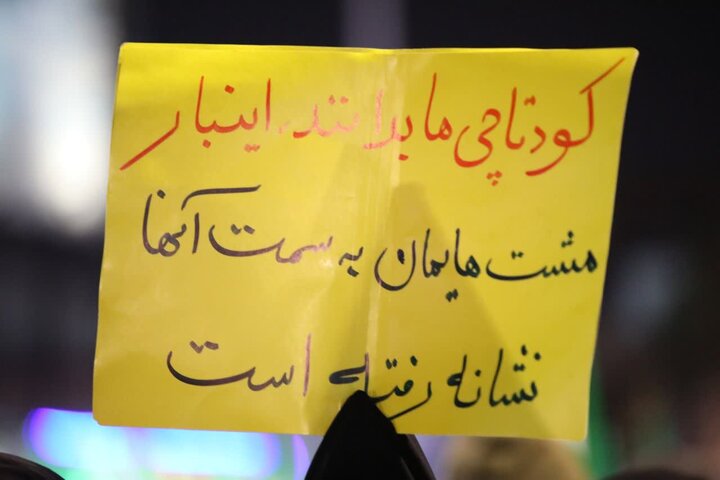 کودتاچی ها بدانند، اینبار
مشت هایمان به سمت آنها
نشانه رفته است